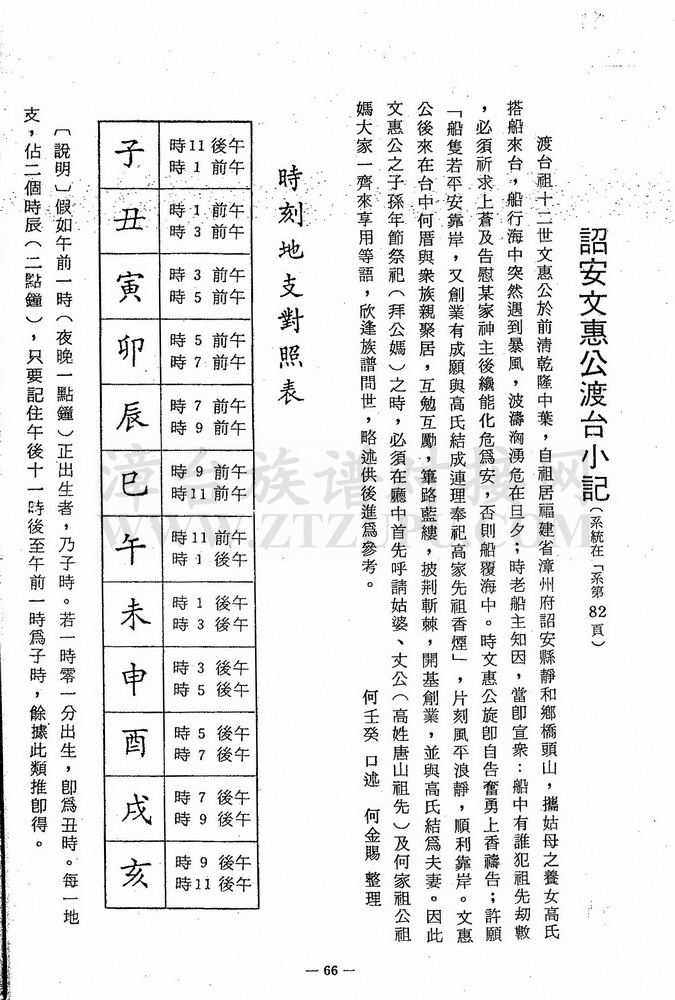 詔安文惠公渡台小記(系統在「系第82頁)
渡台祖十二世文惠公於前清乾隆中葉，自祖居福建省漳州府詔安縣靜和鄉橋頭山，攜姑母之養女高氏
搭船來台，船行海中突然遇到暴風，波濤洶湧危在旦夕；時老船主知因，當卽宣衆：船中有誰犯祖先劫數
，必須祈求上蒼及告慰某家神主後纔能化危爲安，否則船覆海中。時文惠公旋卽自告奮勇上香禱告；許願
「船隻若平安靠岸，又創業有成願與高氏結成連理奉祀高家先祖香煙」，片刻風平浪靜，順利靠岸。文惠
公後來在台中何厝與衆族親聚居，互勉互勵，篳路藍縷，披荆斬棘，開基創業，並與高氏結爲夫妻。因此
文惠公之子孫年節祭祀(拜公媽)之時，必須在廳中首先呼請姑婆、丈公(高姓唐山祖先)及何家祖公祖
媽大家一齊來享用等語，欣逢族譜問世，略述供後進爲參考。
何壬癸 口述 何金賜 整理
時刻地支對照表
子 午後11時 午前1時
丑 午前1時 午前3時
寅 午前3時 午前5時
卯 午前5時 午前7時
辰 午前7時 午前9時
巳 午前9時 午前11時
午 午前11時 午後1時
未 午後1時 午後3時
申 午後3時 午後5時
酉 午後5時 午後7時
戌 午後7時 午後9時
亥 午後9時 午後11時
〔說明〕假如午前一時(夜晚一點鐘)正出生者，乃子時。若一時零一分出生，卽爲丑時。每一地
支，佔二個時辰(二點鐘)，只要記住午後十一時後至午前一時爲子時，餘據此類推卽得。
— 66 —
漳台族谱对接网
WWW.ZTZUPU.COM